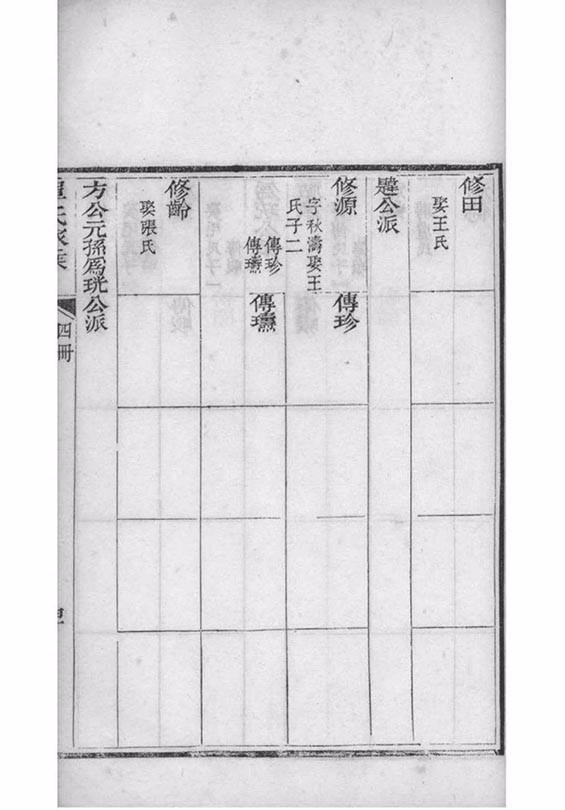 修田
娶王氏
公派
修源
字秋濤娶王
氏子二
傳珍
傳瓙
傳珍
傳瓙
修齡
娶張氏
方公元孫爲珖公派
四冊